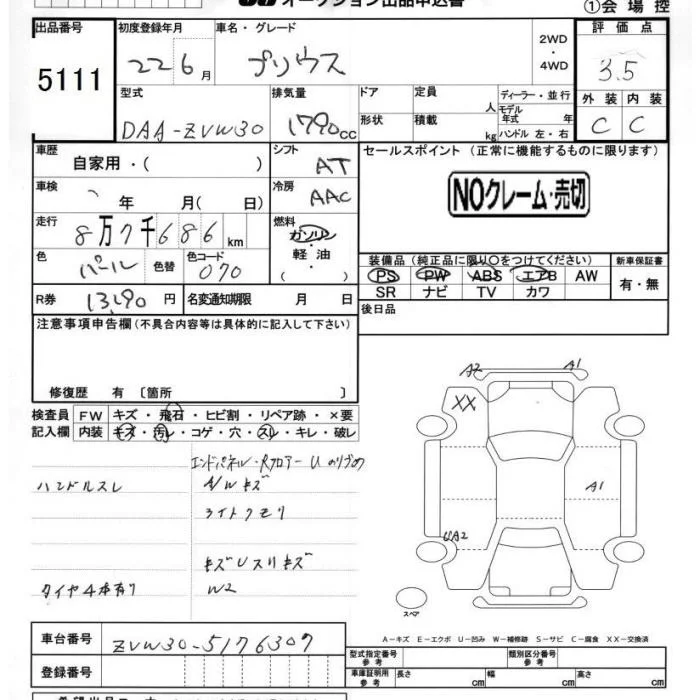 オークション出品申込書 ①会場控
出品番号 5111
初度登録年月 22 6月
車名・グレード プリウス
2WD・4WD
評価点 3.5
外装 内装
C C
型式 DAA-ZVW30
排気量 1790cc
ドア
形状
定員 人
積載 kg
ディーラー・並行
モデル年式 年
ハンドル 左・右
車歴 自家用・( )
シフト AT
セールスポイント(正常に機能するものに限ります)
NOクレーム・売切
車検 年 月( 日)
冷房 AAC
走行 8万7千686km
燃料 ガソリン・軽油・( )
色 パール 色替 色コード 070
装備品(純正品に限り〇をつけてください) 新車保証書
PS PW ABS エアB AW 有・無
SR ナビ TV カワ
R券 13,190円 名変通知期限 月 日
後日品
注意事項申告欄(不具合内容等は具体的に記入して下さい)
修復歴 有〔箇所 〕
検査員記入欄
FW キズ・飛石・ヒビ割・リペア跡・×要
内装 キズ・汚レ・コゲ・穴・スレ・キレ・破レ
エンドパネル・Rフロアー U のりづめ
ハンドルスレ A/Wキズ
ライトクモリ
キズUスリキズ
タイヤ4本有り W2
A2 A1
XX
A1
UA2
スペア
A-キズ E-エクボ U-凹み W-補修跡 S-サビ C-腐食 XX-交換済
車台番号 ZVW30-5176307
登録番号
型式指定番号 参考 類別区分番号 参考
車庫証明用 参考 長さ cm 幅 cm 高さ cm